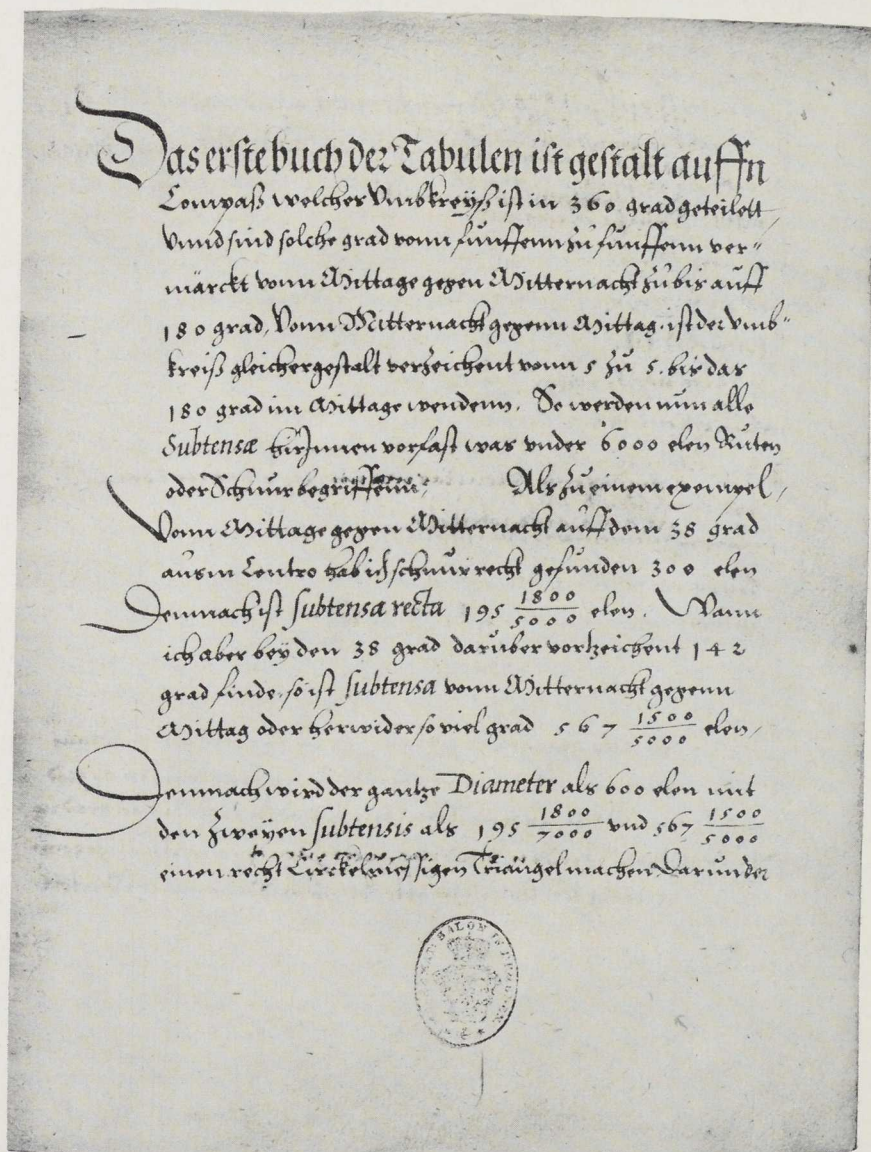 Das erste buch der Tabulen ist gestalt auffn
Compaß welcher Vmbkreyß ist in 360 grad geteilett
Vnnd sind solche grad vonn funffenn zu funffenn ver=
märckt vonn Mittage gegen Mitternacht zu bis auff
180 grad, Vonn Mitternacht gegenn Mittag ist der Vmb=
kreiß gleichergestalt verzeichent vonn 5 zu 5. bis das
180 grad im Mittage wendenn. So werden nun alle
Subtensæ hirInnen vorfast was vnder 6000 elen Ruten
oder Schnur begriffenn, Als zu einem exempel,
Vonn Mittage gegen Mitternacht auff dem 38 grad
aus m Centro hab ich schnurrecht gefunden 300 elen
Demnach ist subtensa recta 195 1800/5000 elen. Wann
ich aber bey den 38 grad daruber vortzeichent 142
grad finde, so ist subtensa vonn Mitternacht gegenn
Mittag oder herwider so viel grad 567 1500/5000 elen,
Demnach wird der gantze Diameter als 600 elen mit
den zweyen subtensis als 195 1800/7000 vnd 567 1500/5000
einen recht Triangel machen Darunder